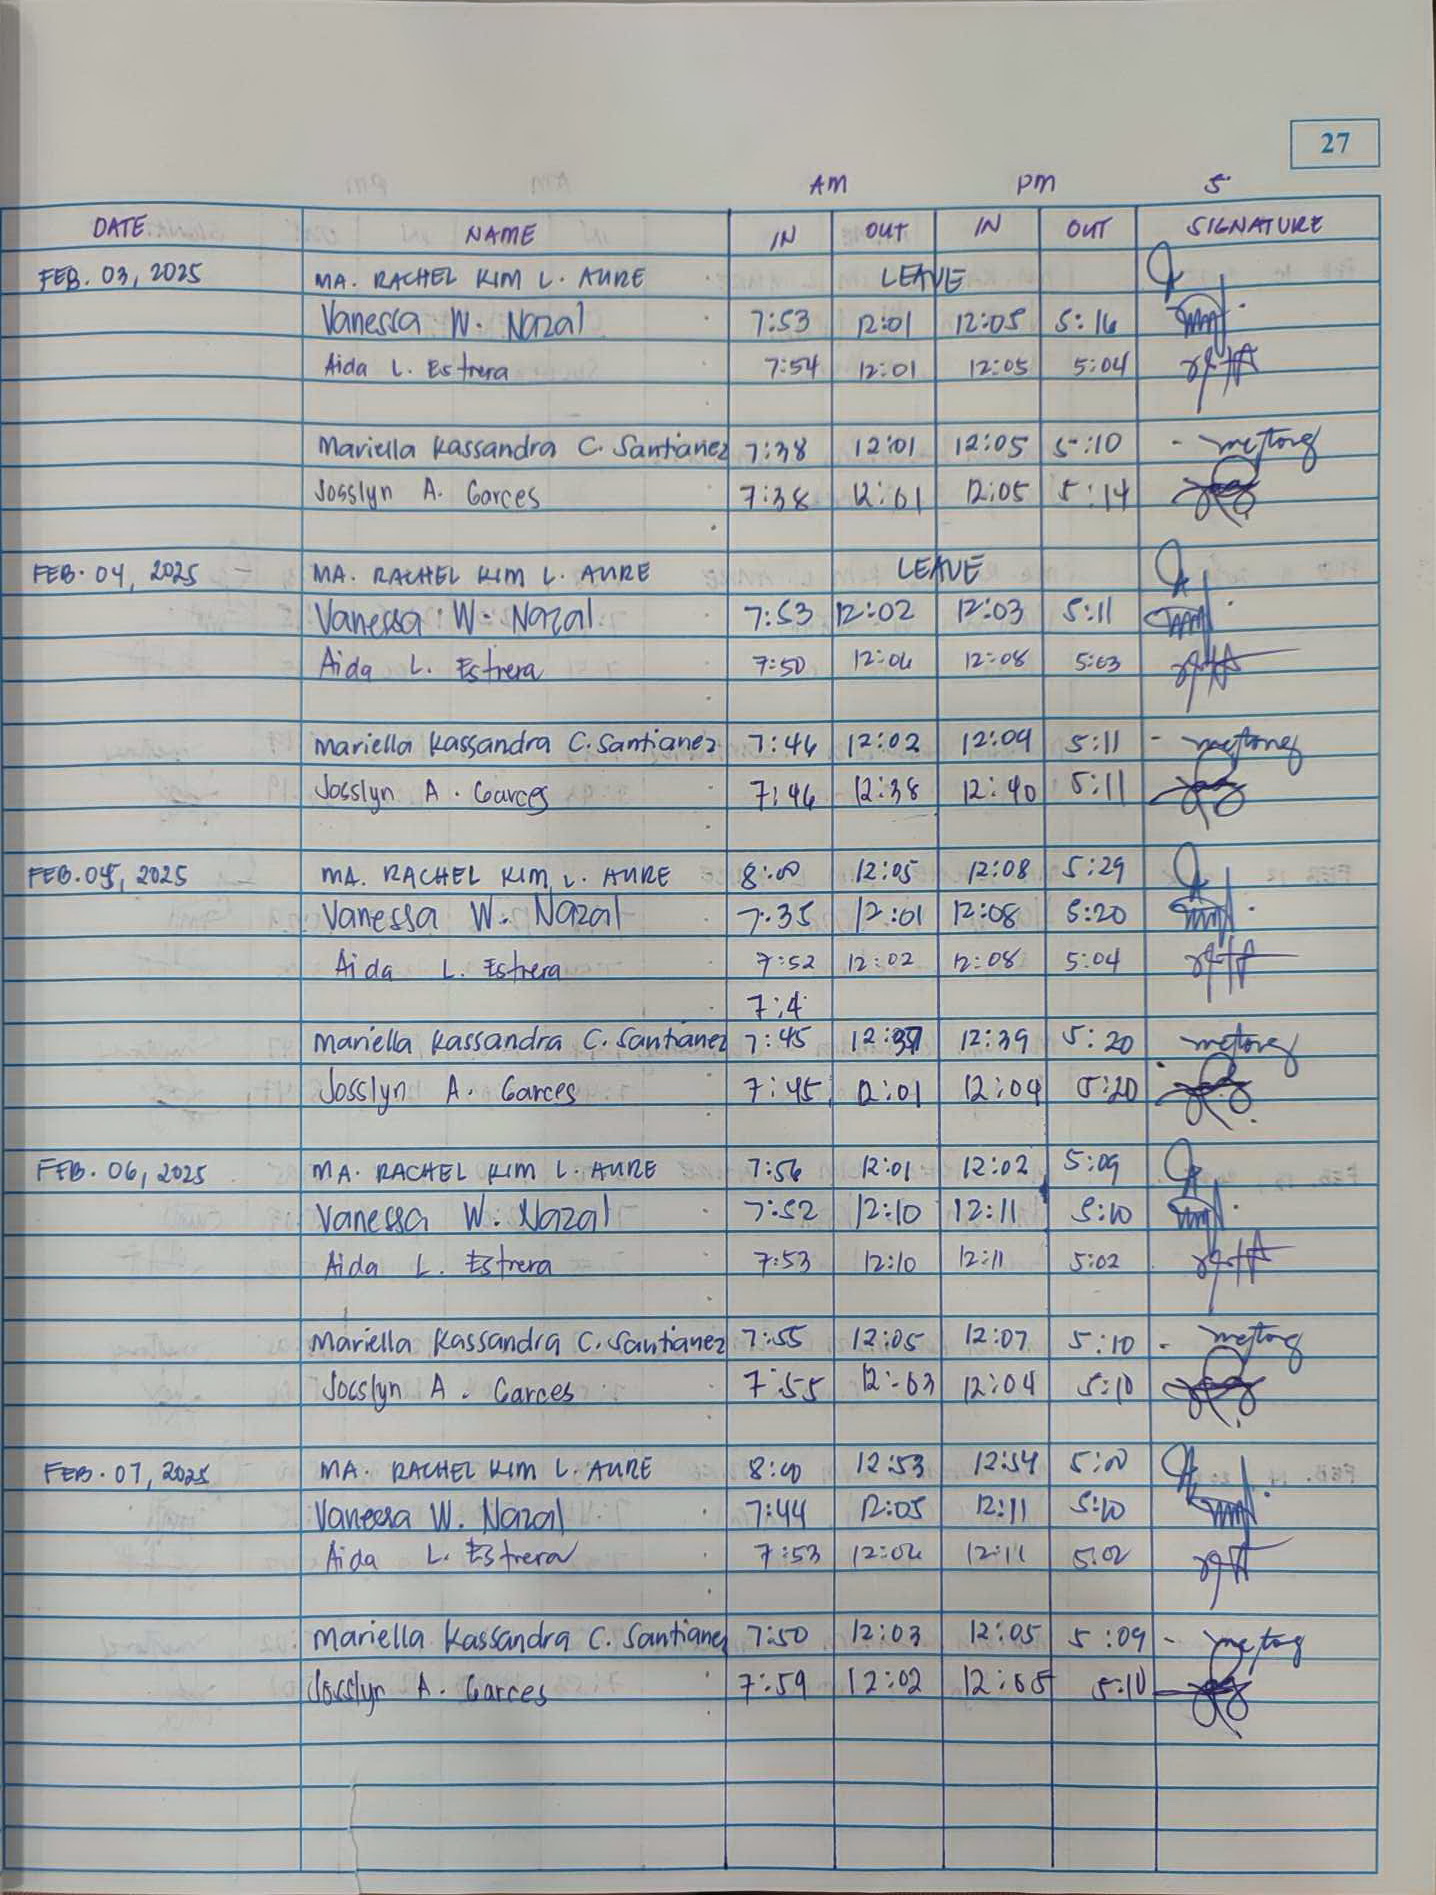 27
AM PM 5
DATE NAME IN OUT IN OUT SIGNATURE
FEB. 03, 2025 MA. RACHEL KIM L. AURE LEAVE
Vanessa W. Nazal 7:53 12:01 12:05 5:16
Aida L. Estrera 7:54 12:01 12:05 5:04
Mariella Kassandra C. Santianez 7:38 12:01 12:05 5:10
Josslyn A. Garces 7:38 12:01 12:05 5:14
FEB. 04, 2025 MA. RACHEL KIM L. AURE LEAVE
Vanessa W. Nazal 7:53 12:02 12:03 5:11
Aida L. Estrera 7:50 12:06 12:08 5:03
Mariella Kassandra C. Santianez 7:46 12:02 12:09 5:11
Josslyn A. Garces 7:46 12:38 12:40 5:11
FEB. 05, 2025 MA. RACHEL KIM L. AURE 8:00 12:05 12:08 5:29
Vanessa W. Nazal 7:35 12:01 12:08 5:20
Aida L. Estrera 7:52 12:02 12:08 5:04
7:4
Mariella Kassandra C. Santianez 7:45 12:37 12:39 5:20
Josslyn A. Garces 7:45 12:01 12:04 5:20
FEB. 06, 2025 MA. RACHEL KIM L. AURE 7:56 12:01 12:02 5:09
Vanessa W. Nazal 7:52 12:10 12:11 5:10
Aida L. Estrera 7:53 12:10 12:11 5:02
Mariella Kassandra C. Santianez 7:55 12:05 12:07 5:10
Josslyn A. Garces 7:55 12:03 12:04 5:10
FEB. 07, 2025 MA. RACHEL KIM L. AURE 8:00 12:53 12:54 5:00
Vanessa W. Nazal 7:44 12:05 12:11 5:10
Aida L. Estrera 7:53 12:06 12:11 5:02
Mariella Kassandra C. Santianez 7:50 12:03 12:05 5:09
Josslyn A. Garces 7:59 12:02 12:05 5:10